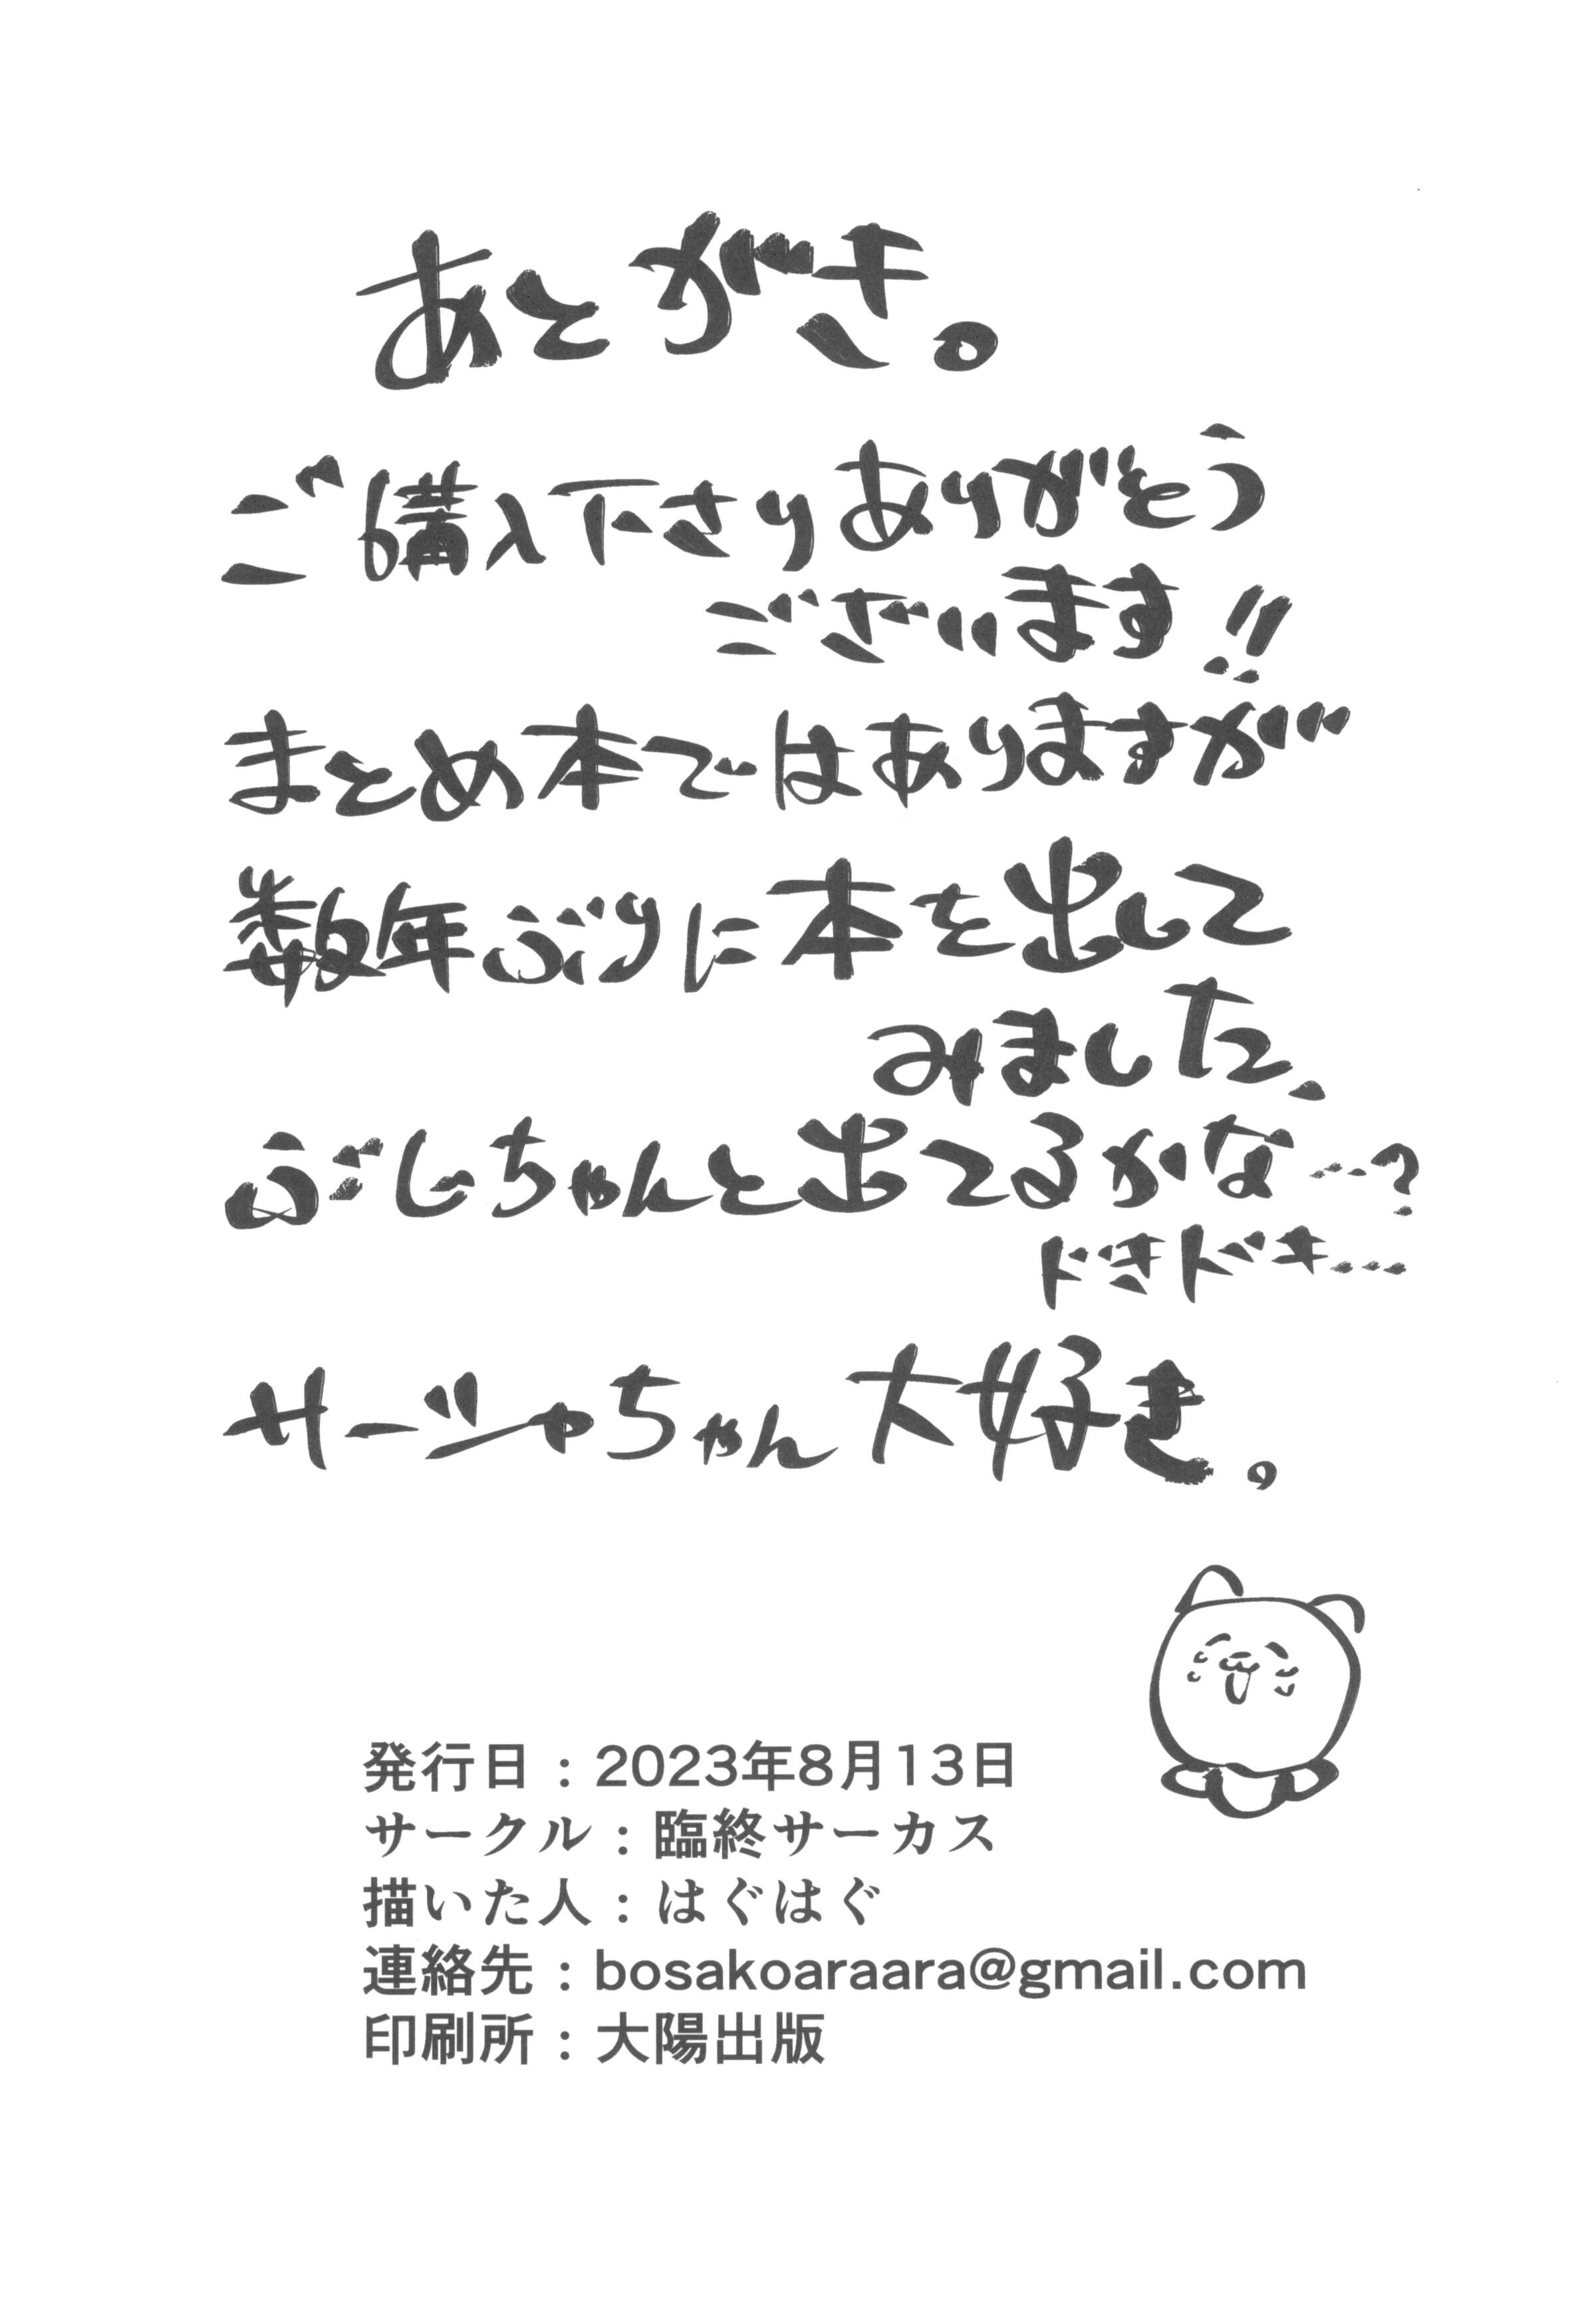 あとがき。
ご購入下さりありがとう
ございます!!
まとめ本ではありますが
数年ぶりに本を出して
みました、
ぶじちゃんと出てるかな…?
ドきドキ…
サーシャちゃん大好き。
発行日:2023年8月13日
サークル:臨終サーカス
描いた人:はぐはぐ
連絡先:bosakoaraara@gmail.com
印刷所:大陽出版